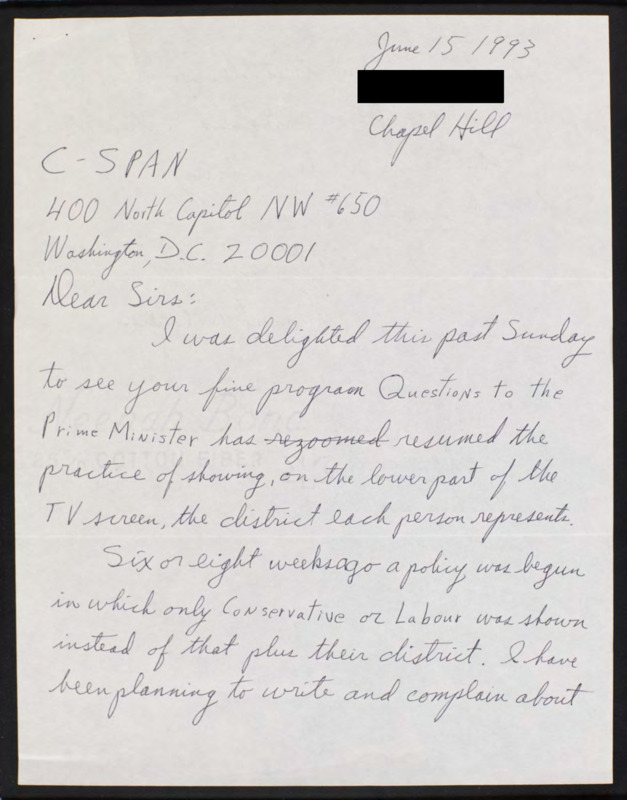 June 15 1993
Chapel Hill
C-SPAN
400 North Capitol NW #650
Washington, D.C. 20001
Dear Sirs:
I was delighted this past Sunday
to see your fine program Questions to the
Prime Minister has rezoomed resumed the
practice of showing, on the lower part of the
TV screen, the district each person represents.
Six or eight weeks ago a policy was begun
in which only Conservative or Labour was shown
instead of that plus their district. I have
been planning to write and complain about